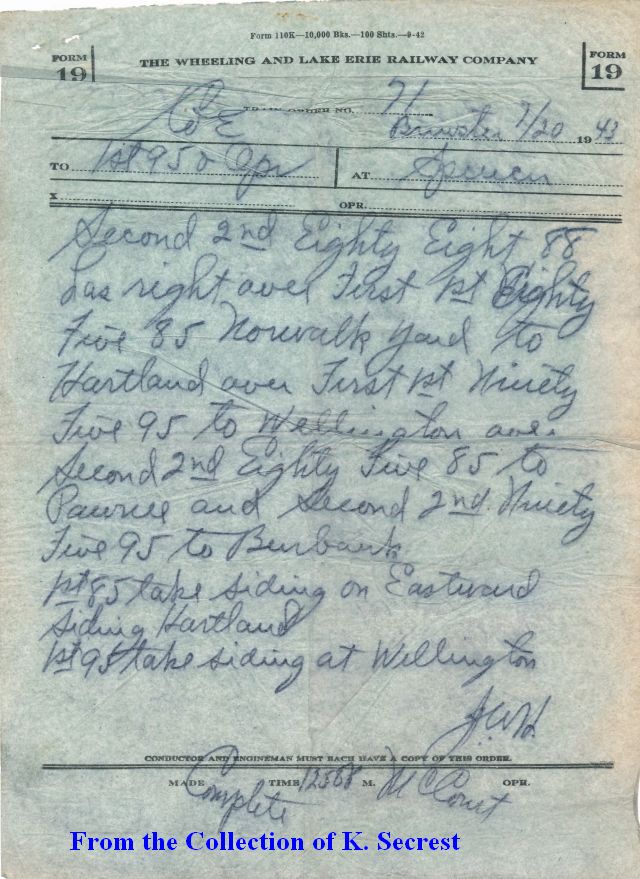 Form 110K—10,000 Bks.—100 Shts.—9-42
FORM 19
THE WHEELING AND LAKE ERIE RAILWAY COMPANY
FORM 19
TRAIN ORDER NO. 71
C&E
Brewster 7/20 1943
TO 1st 95 Opr AT Spencer
X OPR.
Second 2nd Eighty Eight 88
has right over First 1st Eighty
Five 85 Norwalk yard to
Hartland over First 1st Ninety
Five 95 to Wellington over
Second 2nd Eighty Five 85 to
Pawnee and Second 2nd Ninety
Five 95 to Burbank
1st 85 take siding on Eastward
siding Hartland
1st 95 take siding at Wellington
CONDUCTOR AND ENGINEMAN MUST EACH HAVE A COPY OF THIS ORDER.
MADE Complete TIME M. McCourt OPR.
From the Collection of K. Secrest